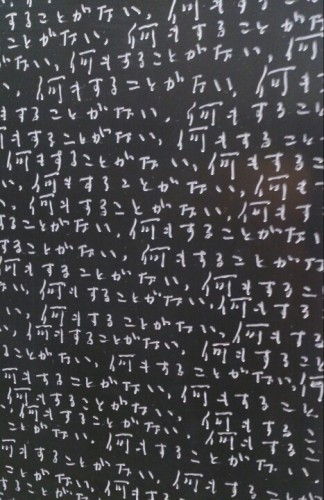 することがない、何もすること
ことがない、何もすることがない、
がない、何もすることがない、何
、何もすることがない、何も
もすることがない、何もするこ
もすることがない、何もすること
何もすることがない、何もするこ
い、何もすることがない、何も
い、何もすることがない、何もす
ことがない、何もすることがない
することがない、何もすることが
何もすることがない、何もする
、何もすることがない、何もする
い、何もすることがない、何もす
い、何もすることがない、何もす
ことがない、何もすることがな
何もすることがない、何もすることがない、何
何もすることがない、何もすること
、何もすることがない、何もする
ことがない、何もすることがない、何もする
何もすることがない、何もすること
ことがない、何もすることがない